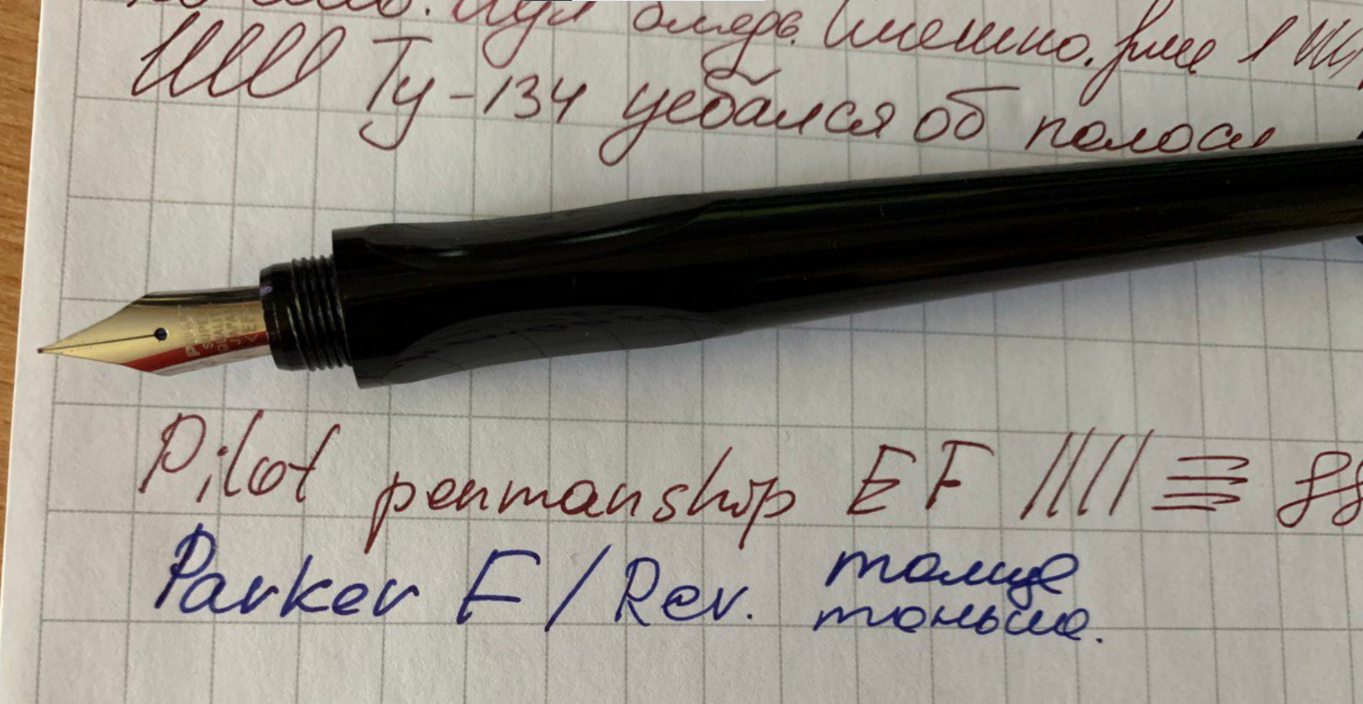 блядь. Именно.
Ту-134 уебался об полосу
Pilot penmanship EF
Parker F / Rev. толще
тоньше.